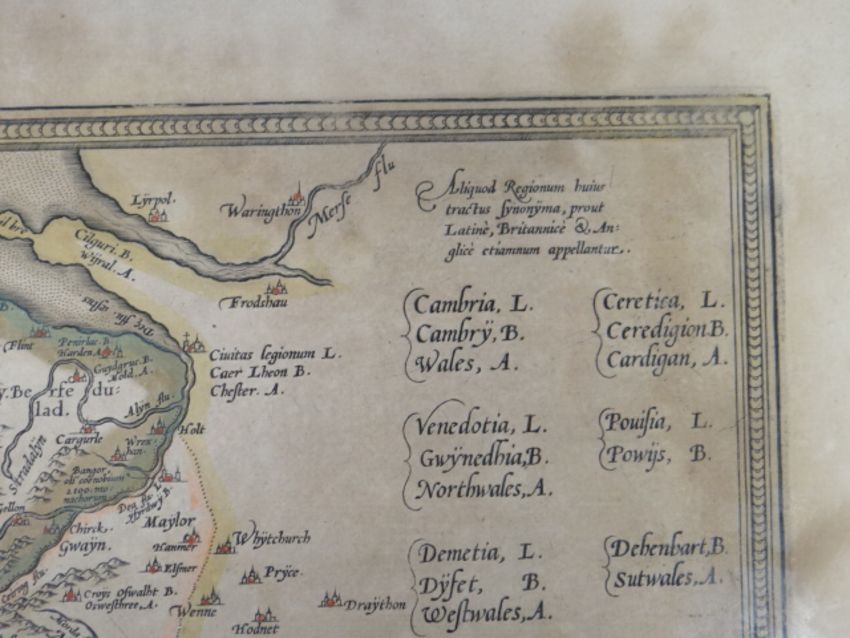 Aliquod Regionum huius
tractus synonÿma, prout
Latinè, Britannicè & An:
glicè etiamnum appellantur.
Cambria, L.
Cambrÿ, B.
Wales, A.
Ceretica, L.
Ceredigion B.
Cardigan, A.
Venedotia, L.
Gwÿnedhia, B.
Northwales, A.
Pouisia, L.
Powijs, B.
Demetia, L.
Dÿfet, B.
Westwales, A.
Dehenbart, B.
Sutwales, A.
Lÿrpol.
Waringthon
Merse flu
Cilguri. B.
Wijral. A.
Frodshau
Flint
Harden A.
Guydgruc. B.
Mold. A.
Ciuitas legionum L.
Caer Lheon B.
Chester. A.
ÿ. Be rfe du:
lad.
Alÿn flu.
Stradalÿn
Cargurle
Wrex
han.
Holt
Bangor
1200. mo
nachorum
Maÿlor
Chirck.
Gwaÿn.
Hanmer
Elsmer
Whÿtchurch
Prÿce.
Croys Oswalht B.
Oswesthree, A.
Wenne
Draÿthon
Hodnet